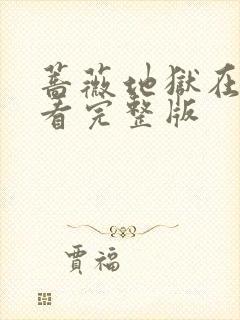 蔷薇地獄在
看完整版
賈福